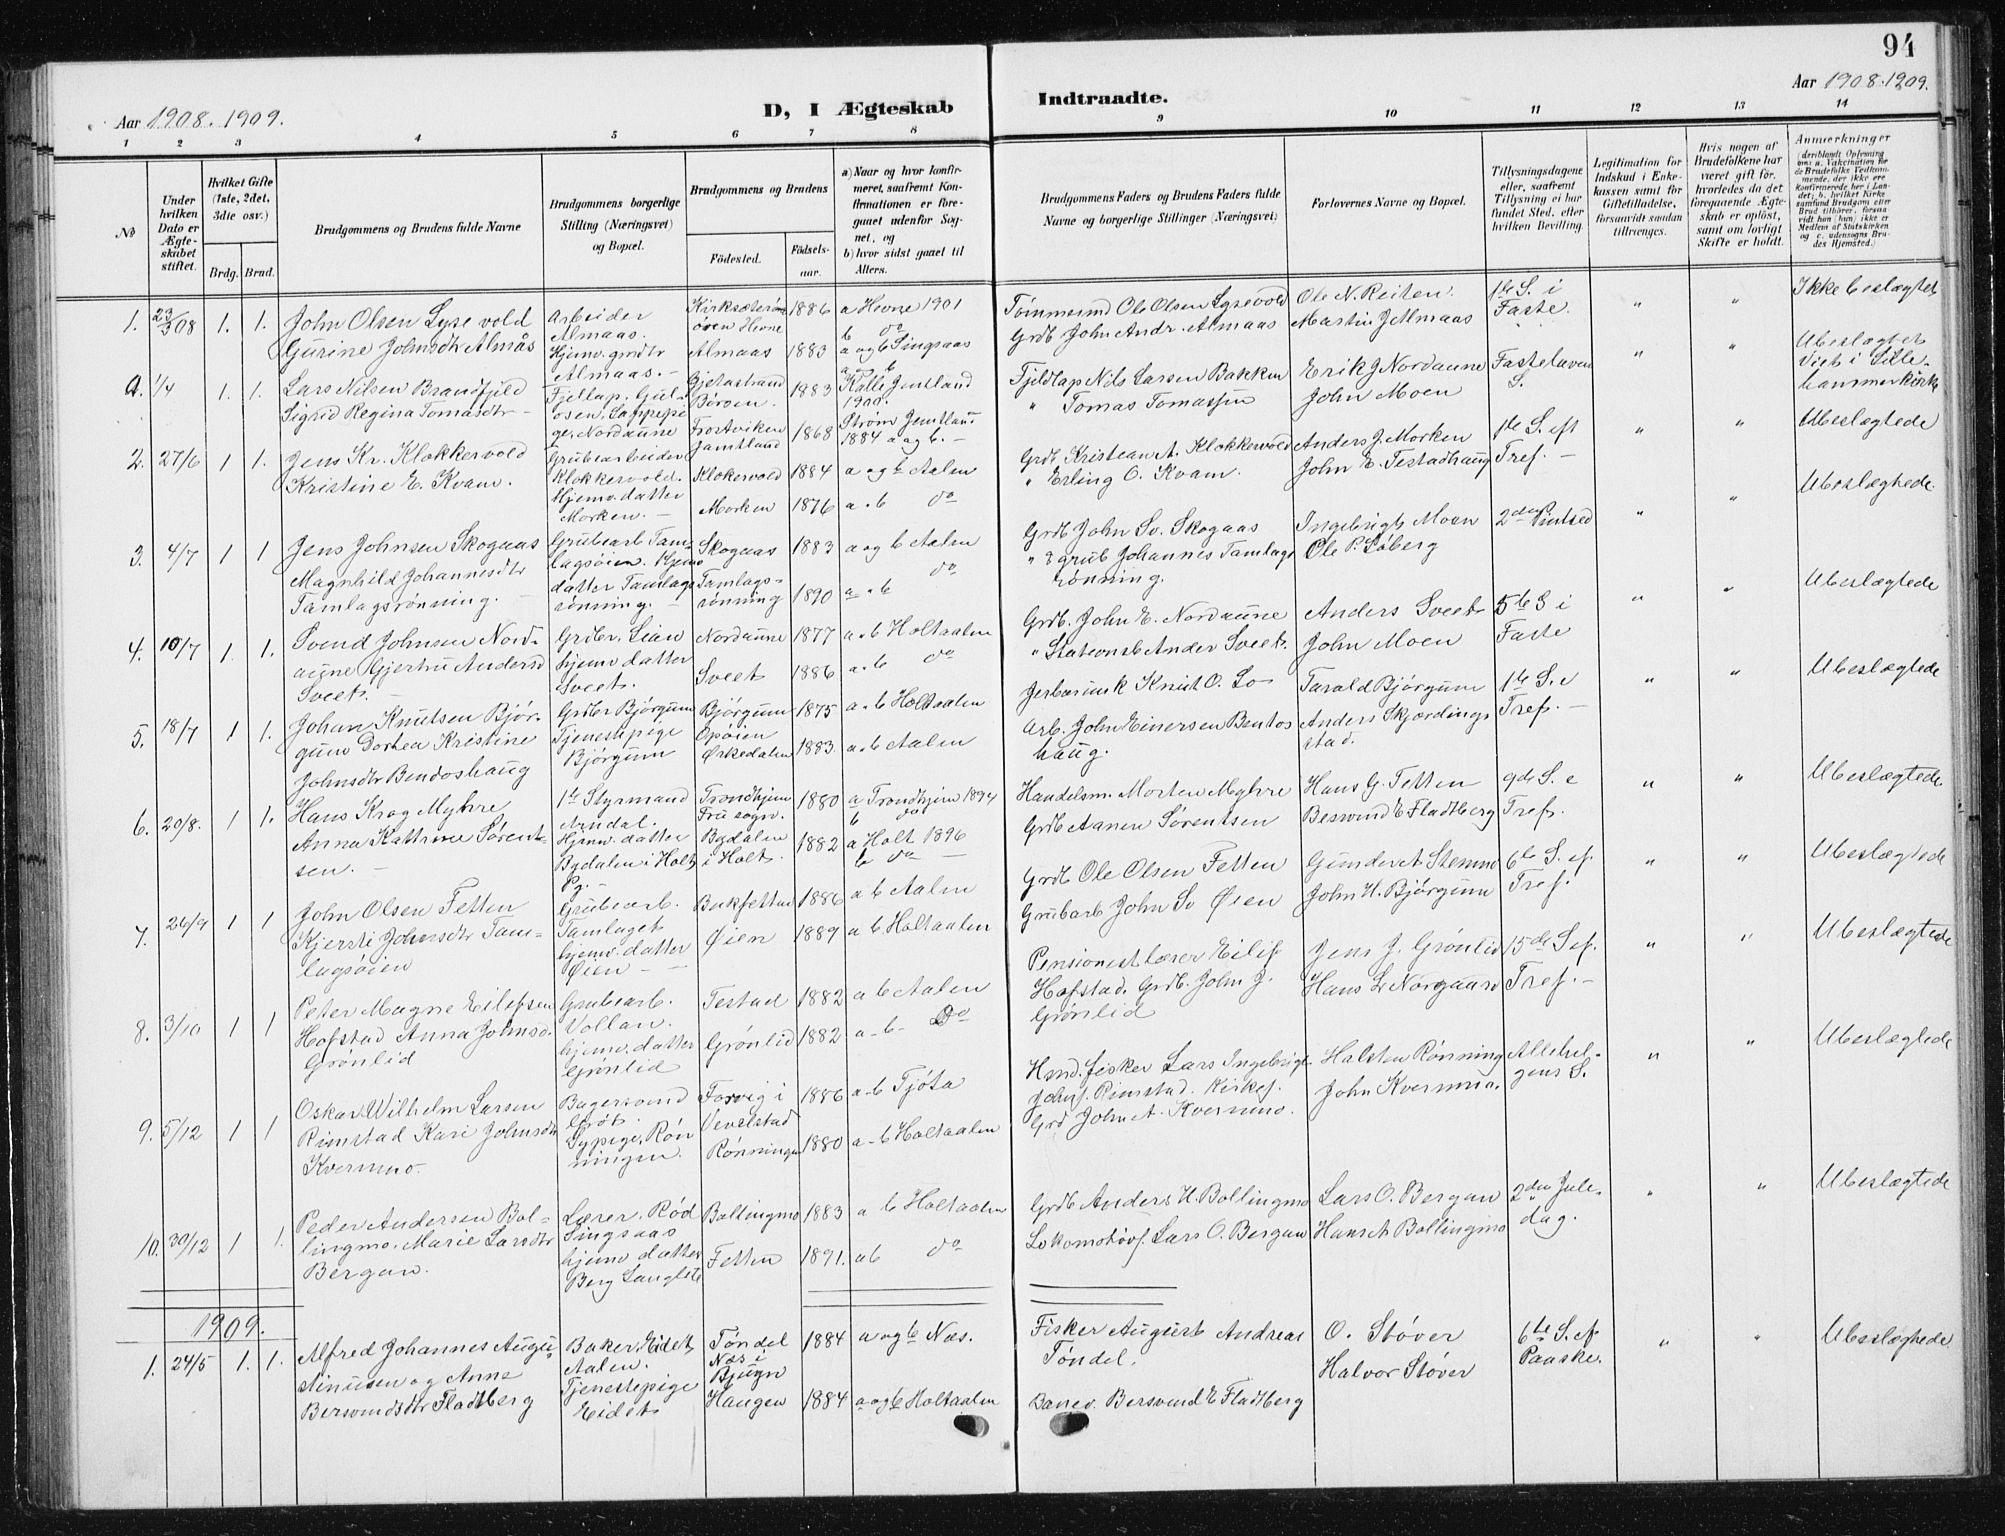 94
Aar 1908. 1909.
D, I Ægteskab
Indtraadte.
Aar 1908. 1909.
1 2 3 4 5 6 7 8 9 10 11 12 13 14
No
Under hvilken Dato er Ægteskabet stiftet.
Hvilket Gifte (1ste, 2det, 3die osv.)
Brdg. Brud.
Brudgommens og Brudens fulde Navne
Brudgommens borgerlige Stilling (Næringsvei) og Bopæl.
Brudgommens og Brudens
Födested.
Födselsaar.
a) Naar og hvor konfirmeret, saafremt Konfirmationen er foregaaet udenfor Sognet, og
b) hvor sidst gaaet til Alters.
Brudgommens Faders og Brudens Faders fulde Navne og borgerlige Stillinger (Næringsvei)
Forlovernes Navne og Bopæl.
Tillysningsdagene eller, saafremt Tillysning ei har fundet Sted, efter hvilken Bevilling.
Legitimation for Indskud i Enkekassen samt for Giftetilladelse, forsaavidt saadan tiltrænges.
Hvis nogen af Brudefolkene har været gift för, hvorledes da det foregaaende Ægteskab er oplöst, samt om lovligt Skifte er holdt.
Anmærkninger
(deriblandt Oplysning om: a. Vakcination for de Brudefolks Vedkommende, der ikke ere konfirmerede her i Landet; b. hvilket Kirkesamfund Brudgom eller Brud tilhörer, forsaavidt han (hun) ikke er Medlem af Statskirken og c. udensogns Brudes Hjemsted.)
1. 23/3 08 1. 1.
John Olsen Lysevold
Gurine Johnsdtr Almås
Arbeider
Almaas.
Hjemv. grdtr
Almaas. -
Kirksæterören Hevne
Almaas
1886
1883
a Hevne 1901
b do
a og b Singsaas
Tømmermd Ole Olsen Lysevold
Grdb John Andr. Almaas
Ole N. Reiten.
Martin J Almaas
1ste S. i
Faste.
" "
Ikke beslægtet
1/4 1. 1.
Lars Nilsen Brandfjeld
Sigrid Regina Tomasdtr -
Fjellap, Gul-
osen, Lappepi
ge, Nordaune
Børøen.
Frostviken
Jamtland
1983
1868
Kalls Jemtland
1900.
Strøm Jemtlan
1884 a og b. -
Fjeldlap Nils Larsen Bakken
" Tomas Tomassen
Erik J Nordaune
John Moen
Fastelaven
S.
" "
Ubeslægtet
Viet i Lille-
hammer kirke
2. 27/6 1 1.
Jens Kr. Klokkervold
Kristine E. Kvam.
Grubearbeider
Klokkervold.
Hjemv. datter
Morken. -
Klokervold
Morken
1884
1876
a og b Aalen
a. b do
Grdb Kristean A. Klokkervold
" Erling O. Kvam.
Anders J. Morken
John E. Testadhaug
1ste S. eft
Tref. -
" "
Ubeslægtede
3. 4/7 1 1
Jens Johnsen Skogaas
Magnhild Johannesdtr
Tamlagsrønning. -
Grubearb Tam-
lagsøien. Hjemv
datter Tamlags
rønning. -
Skogaas
Tamlags-
rønning
1883
1890
a og b Aalen
a. b do
Grdb John Sv. Skogaas
" & grub Johannes Tamlags
rønning.
Ingebrigt Moen
Ole P. Løberg
2den Pintsed
" "
Ubeslægtede
4. 10/7 1. 1.
Svend Johnsen Nord-
aune Gjertru Andersd
Sveet. -
Grdbr. Lian
hjemv. datter
Sveet.
Nordaune
Sveet
1877
1886
a. b Holtaalen
a. b do
Grdb. John E. Nordaune
" Stationsb Ander Sveet.
Anders Sveet
John Moen
5te S i
Faste
" "
Ubeslægtede
5. 18/7 1 1.
Johan Knutsen Bjør-
gum Dortea Kristine
Johnsdtr Bendoshaug
Grdbr Bjørgum
Tjenestepige
Bjørgum
Bjørgum
Opøien
Ørkedalen
1875
1883.
a. b Holtaalen
a. b Aalen
Knut O. Lo
Arb. John Einersen Bentos
haug.
Tarald Bjørgum
Anders Skjærdings
stad.
1ste S. e
Tref. -
" "
Ubeslægtede
6. 20/8. 1 1.
Hans Krag Myhre
Anna Kathrine Sørent-
sen. -
1ste Styrmand
Arndal.
Hjemv. datter
Bydalen i Holt
Pg. -
Trondhjem
Frue sogn.
Bydalen
i Holt.
1880
1882
a Trondhjem 1894
b do
a Holt 1896
b do -
Handelsm. Morten Myhre
Grdb Aanen Sørentsen
Hans G. Fetten
Berswend E Fladtberg
9de S. e
Tref.
" "
Ubeslægtede
7. 26/9 1 1
John Olsen Fetten
Kjersti Johnsdtr Tam-
lagsøien
Grubearb.
Tamlaget
hjemv. datter
Øien - -
Bukfettad
Øien
1886
1889
a b Aalen
a b Holtaalen
Grdb Ole Olsen Fetten
Grubarb John Sv Øien
Gunder A Stenmo
John H. Bjørgum
6te S. ef.
Tref.
" "
Ubeslægtede
8. 3/10 1 1
Peter Magne Eilefsen
Hofstad Anna Johnsd.
Grønlid
Grubearb.
Vollan.
hjemv. datter
Grønlid
Testad
Grønlid
1882
1882
a b Aalen
a. b. Do
Pensionest lærer Eilef
Hofstad. Grdb. John J.
Grønlid
Jens J. Grønlid
Hans L Norgaard
15de S ef.
Tref. -
" "
Ubeslægtede
9. 5/12 1 1
Oskar Wilhelm Larsen
Rimstad Kari Johnsdtr
Kvernmo.
Bagersvend
Grøt.
Sypige, Røn
ningen.
Forvig i
Vevelstad
Rønningen
1886
1880
a. b Tjøta
a. b Holtaalen
Hmd. fisker Lars Ingebrigt
Johns. Rimstad. Kirkef.
Grd John A. Kvernmo.
Halsten Rønning
John Kvernmo.
Allehel-
gens S.
" "
Ubeslægtede
10. 30/12 1 1.
Peder Andersen Bol-
lingmo. Marie Larsdtr
Bergan.
Lærer. Rød
Singsaas
hjemv datter
Berg Langlete
Bollingmo
Fetten
1883
1891.
a b Holtaalen
a b do
Grdb Anders H. Bollingmo
Lokomotivf. Lars O. Bergan
Lars O. Bergan
Hans A Bollingmo
2den Jule-
dag.
" "
Ubeslægtede
1909.
1. 24/5 1. 1.
Alfred Johannes Augu
stinusen og Anne
Berswendsdtr Fladtberg
Baker, Eidet
Aalen.
Tjenestepige
Eidet
Tøndel
Næs i
Bjugn
Haugen
1884
1884
a og b Næs.
a og b Holtaalen
Fisker August Andreas
Tøndel.
Banev. Berswend E Fladtberg
O. Støver
Halvor Støver
6te S. ef
Paaske.
" "
Ubeslægtede